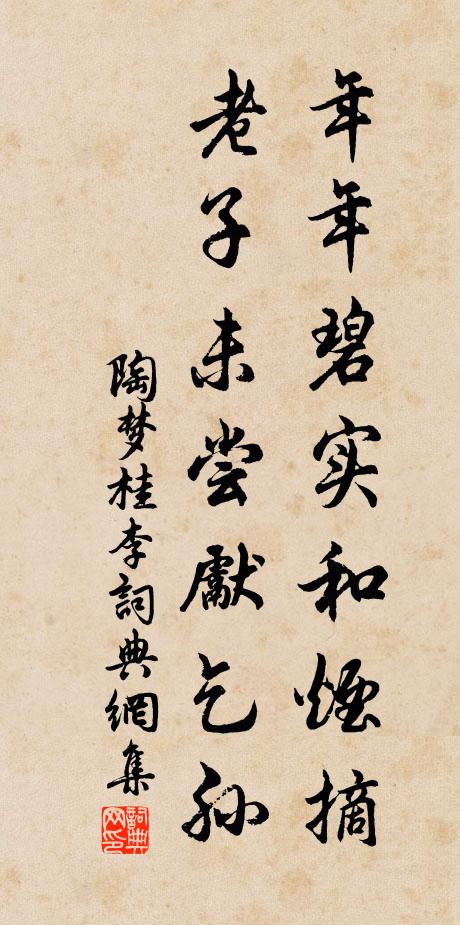 年年碧实和烟摘
老子未尝献乞孙
陶梦桂李詞典網集
詞典网印